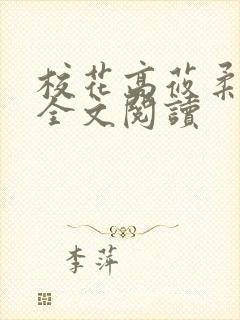 校花高莜柔
全文閱讀
李萍